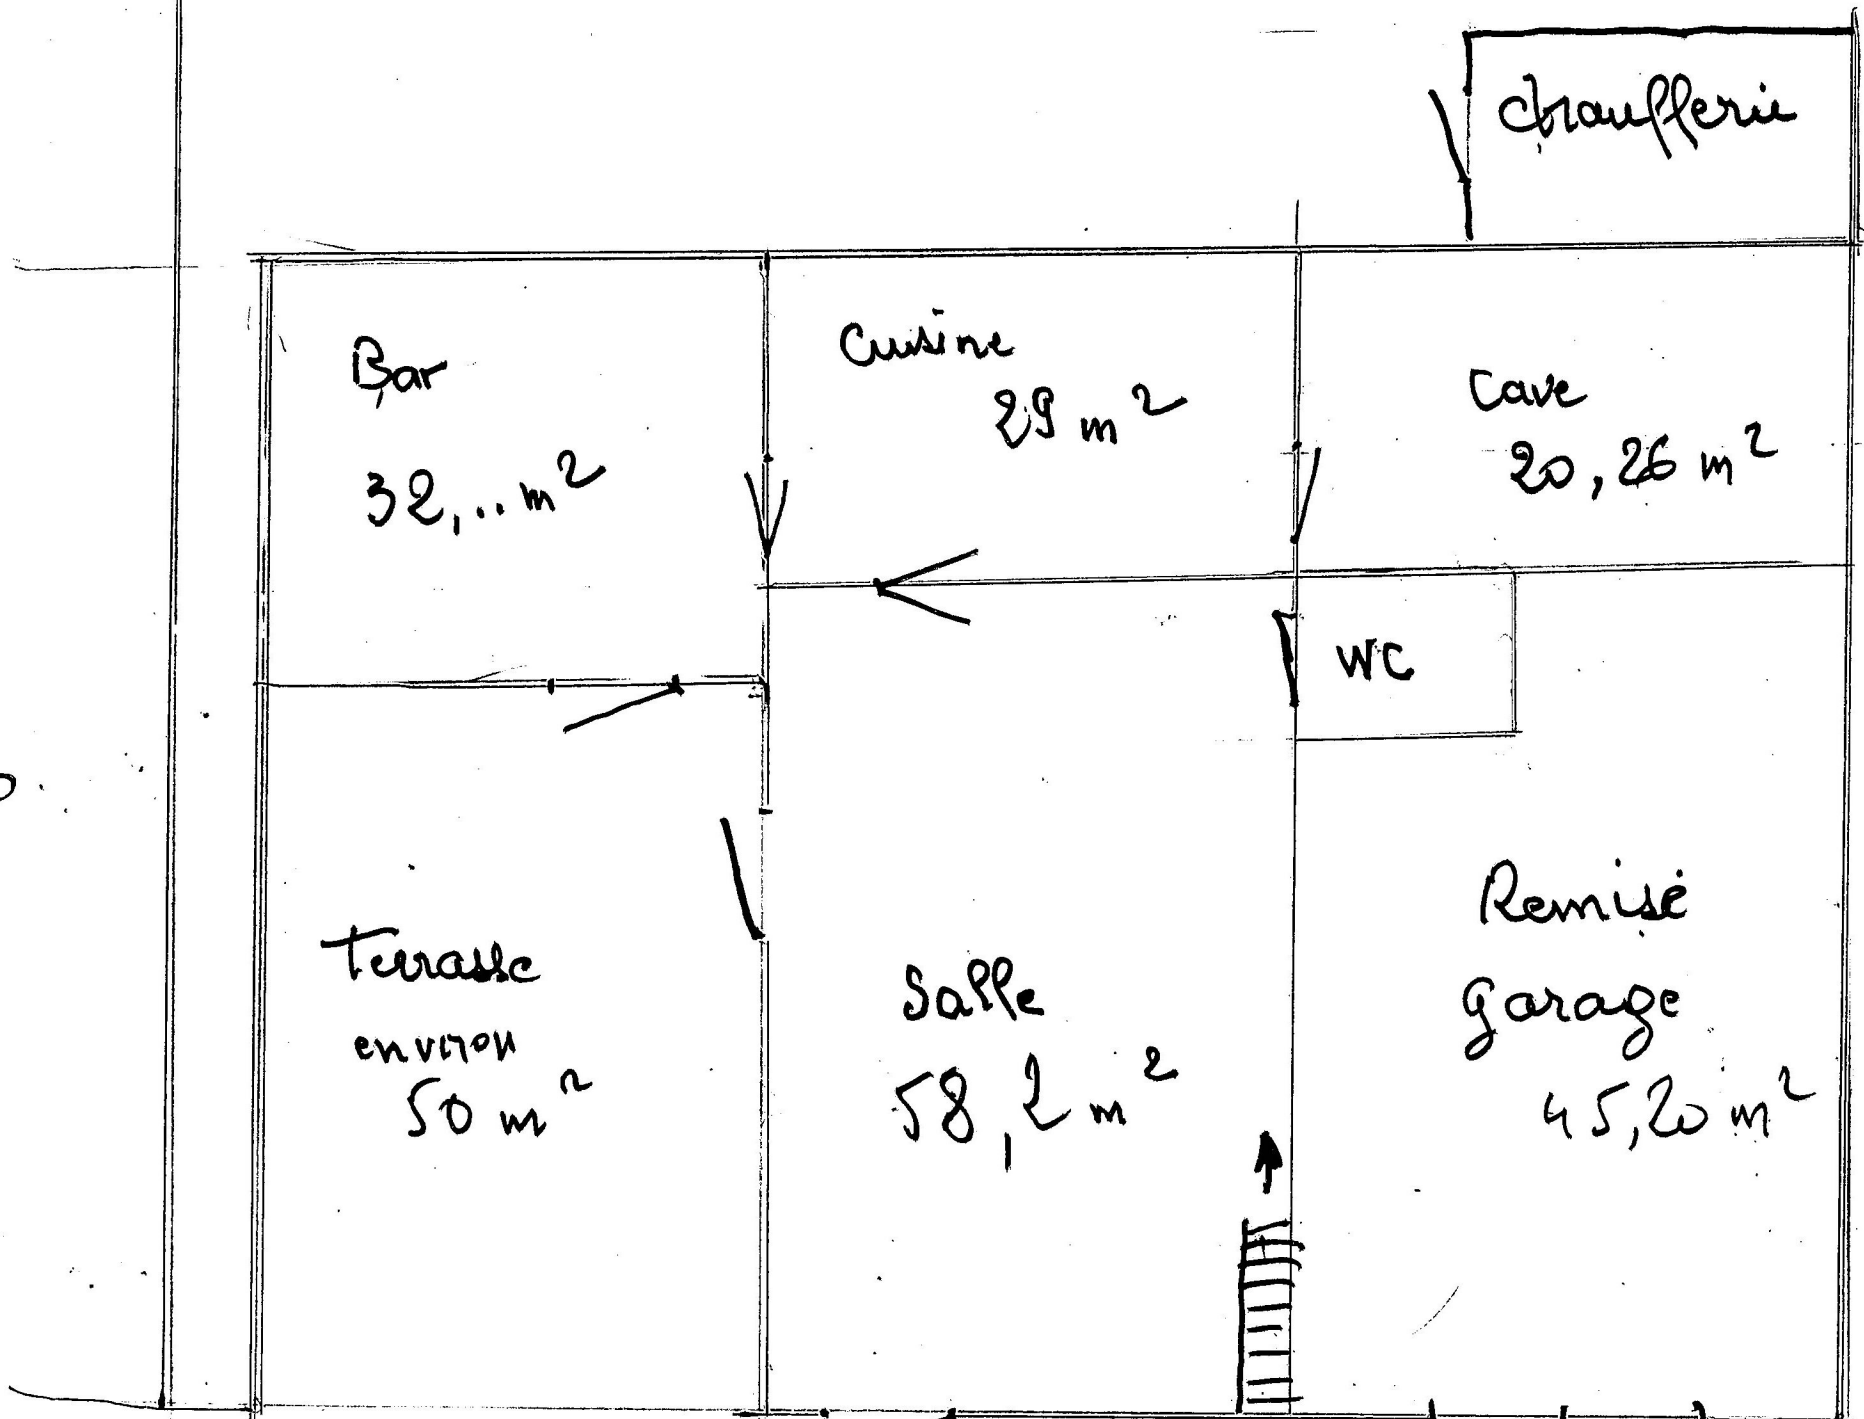 chaufferie
Bar
32,.. m²
Cuisine
29 m²
Cave
20,26 m²
WC
Terrasse
environ
50 m²
Salle
58,2 m²
Remise
garage
45,20 m²